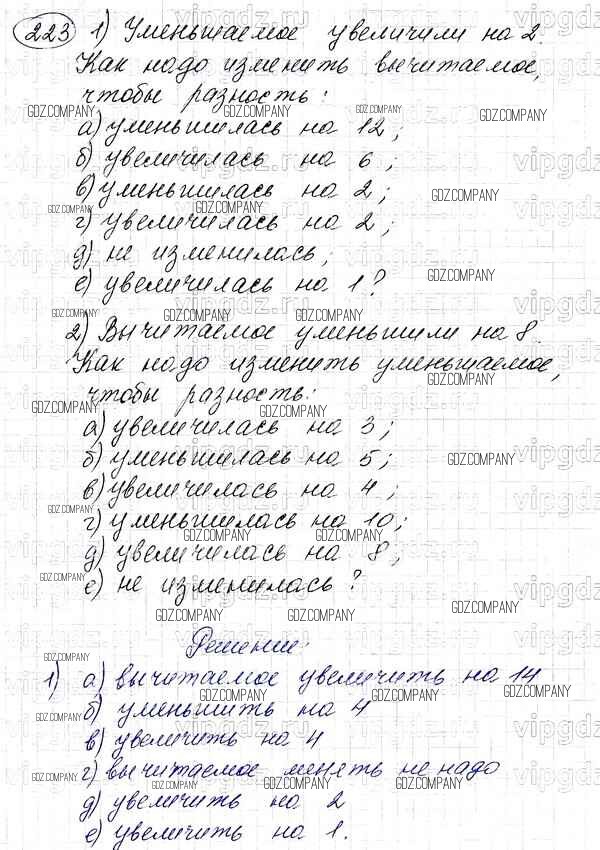 223 1) Уменьшаемое увеличили на 2.
Как надо изменить вычитаемое,
чтобы разность:
а) уменьшилась на 12;
б) увеличилась на 6;
в) уменьшилась на 2;
г) увеличилась на 2;
д) не изменилась;
е) увеличилась на 1?
2) Вычитаемое уменьшили на 8.
Как надо изменить уменьшаемое,
чтобы разность:
а) увеличилась на 3;
б) уменьшилась на 5;
в) увеличилась на 4;
г) уменьшилась на 10;
д) увеличилась на 8;
е) не изменилась?
Решение:
1) а) вычитаемое увеличить на 14
б) уменьшить на 4
в) увеличить на 4
г) вычитаемое менять не надо
д) увеличить на 2
е) увеличить на 1.